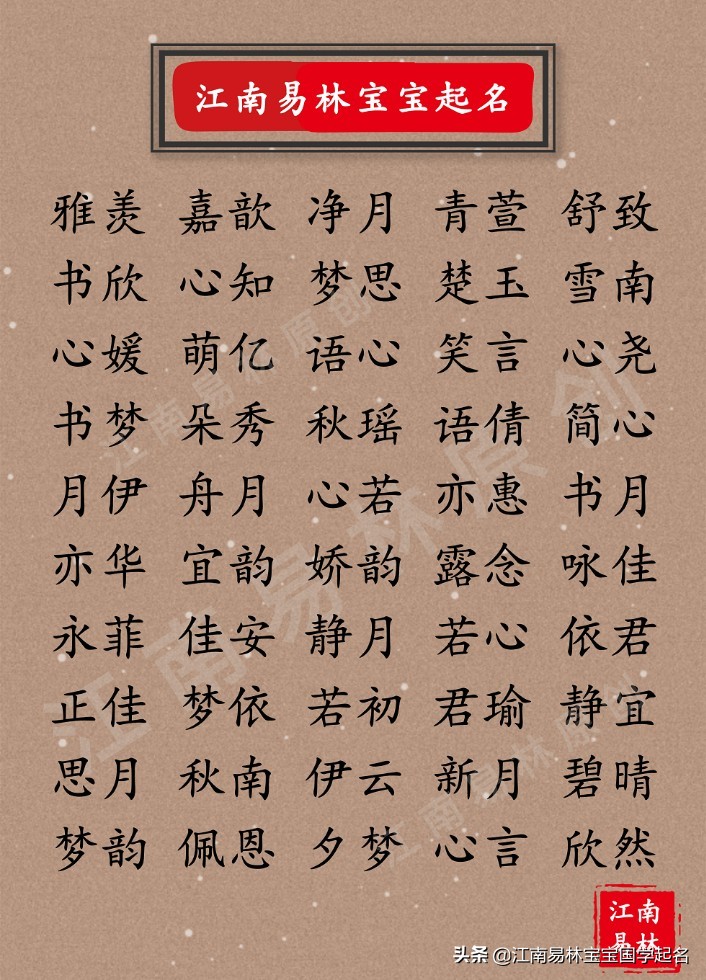 江南易林宝宝起名
雅羡 嘉歆 净月 青萱 舒致
书欣 心知 梦思 楚玉 雪南
心媛 萌亿 语心 笑言 心尧
书梦 朵秀 秋瑶 语倩 简心
月伊 舟月 心若 亦惠 书月
亦华 宜韵 娇韵 露念 咏佳
永菲 佳安 静月 若心 依君
正佳 梦依 若初 君瑜 静宜
思月 秋南 伊云 新月 碧晴
梦韵 佩恩 夕梦 心言 欣然
江南易林原创
江南易林原创
江南易林原创
江南
易林
头条 @江南易林宝宝国学起名